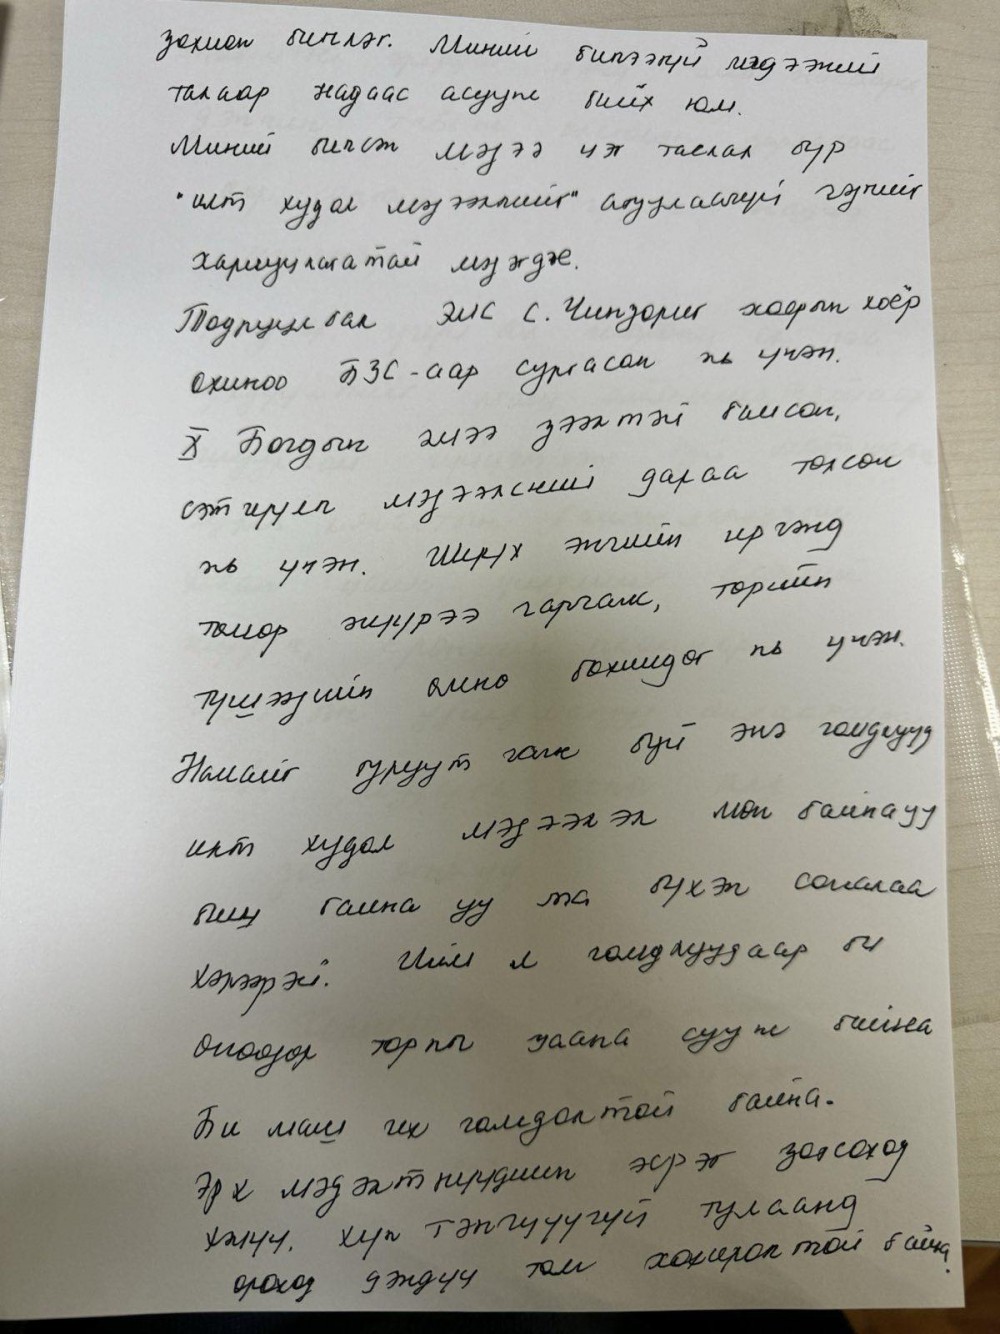 зохион бичлэг. Миний бичээгүй мэдээний
талаар надаас асууж байх юм.
Миний бичсэн мэдээ нэг таслал бүр
"илт худал мэдээллийг" агуулаагүй гэдгийг
хариуцлагатай мэдэгдье.
Тодруулбал ЭМС С.Чинзориг хоёрын хоёр
охиноо БЗС-аар сургасан нь үнэн.
X Богдын эмээ зээлтэй байсан,
сэтгүүлч мэдээлсний дараа төлсөн
нь үнэн. Ширүх энгийн иргэнд
төмөр нүүрээ гаргаж, төрийн
түшээдийн өмнө бөхийдөг нь үнэн.
Намайг буруутгаж буй энэ гомдлууд
илт худал мэдээлэл мөн байна уу
биш байна уу та бүхэн сонголоо
хэлээрэй. Ийм л гомдлуудаар би
өнөөдөр торны цаана сууж байна
Би маш их гомдолтой байна.
Эрх мэдэлтнүүдийн эсрэг зогсоход
хэцүү. хүч тэнцүүгүй тулаанд
ороход дэндүү том хохиролтой байна.